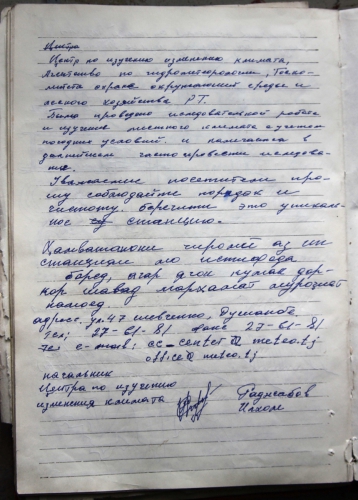 Центра
Центр по изучению изменению климата,
Агентство по гидрометеорологии, Госко-
митета охране окружающей среде и
лесного хозяйства РТ.
Было проведено иследовательной работа
и изучение местного климата с учетом
погодных условий. и намечается в
дальнейшем
Уважаемие посетители про-
шу соблюдайте порядок и
чистоту. берегити это уникаль-
ное станцию.
Хамватанони аз ин
станцияи мо истифода
баред, агар ягон пулаш дар-
кор шавад марҳамат
намоед.
адрес. ул. 47 шевченко, Душанбе.
Тел; 27-61-81 факс 27-61-81
e-mail; cc-center@meteo.tj
office@meteo.tj
начальник
Центра по изучению
изменения климата Раджабов
Илхом